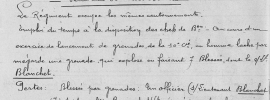 Le Régiment occupe les mêmes cantonnements.
Emploi du temps à la disposition des chefs de Bns. - Au cours d'un
exercice de lancement de grenades de la 10e Cie, un homme lâche par
mégarde une grenade qui explose en faisant 7 Blessés, dont le s/Lt
Blanchet.
Pertes: Blessés par grenades. Un officier (s/Lieutenant Blanchet